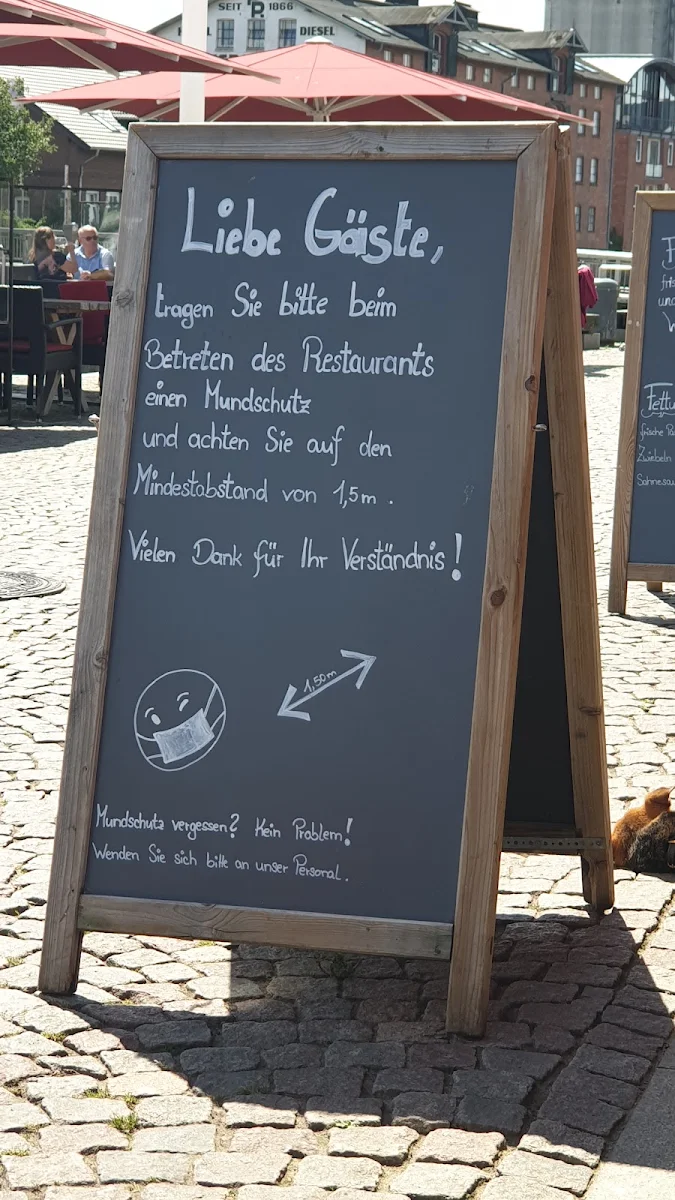 SEIT 1866
DIESEL
Liebe Gäste,
tragen Sie bitte beim
Betreten des Restaurants
einen Mundschutz
und achten Sie auf den
Mindestabstand von 1,5m.
Vielen Dank für Ihr Verständnis!
1,50m
Mundschutz vergessen? Kein Problem!
Wenden Sie sich bitte an unser Personal.
frische
Zwiebeln